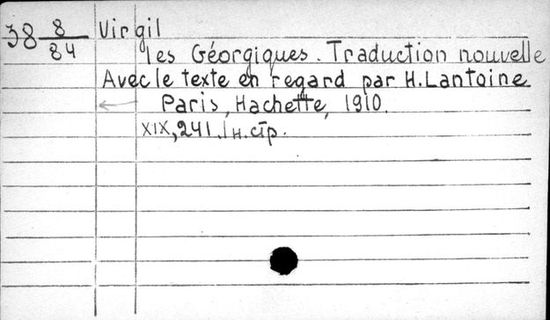 38 8/84 Virgil
les Géorgiques. Traduction nouvelle
Avec le texte en regard par H. Lantoine
Paris, Hachette, 1910.
XIX, 241. 1 н. стр.